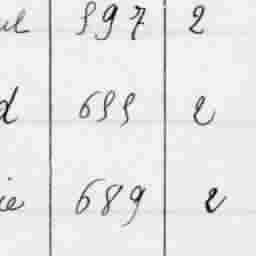 ul 597 2
d 655 2
ie 689 2